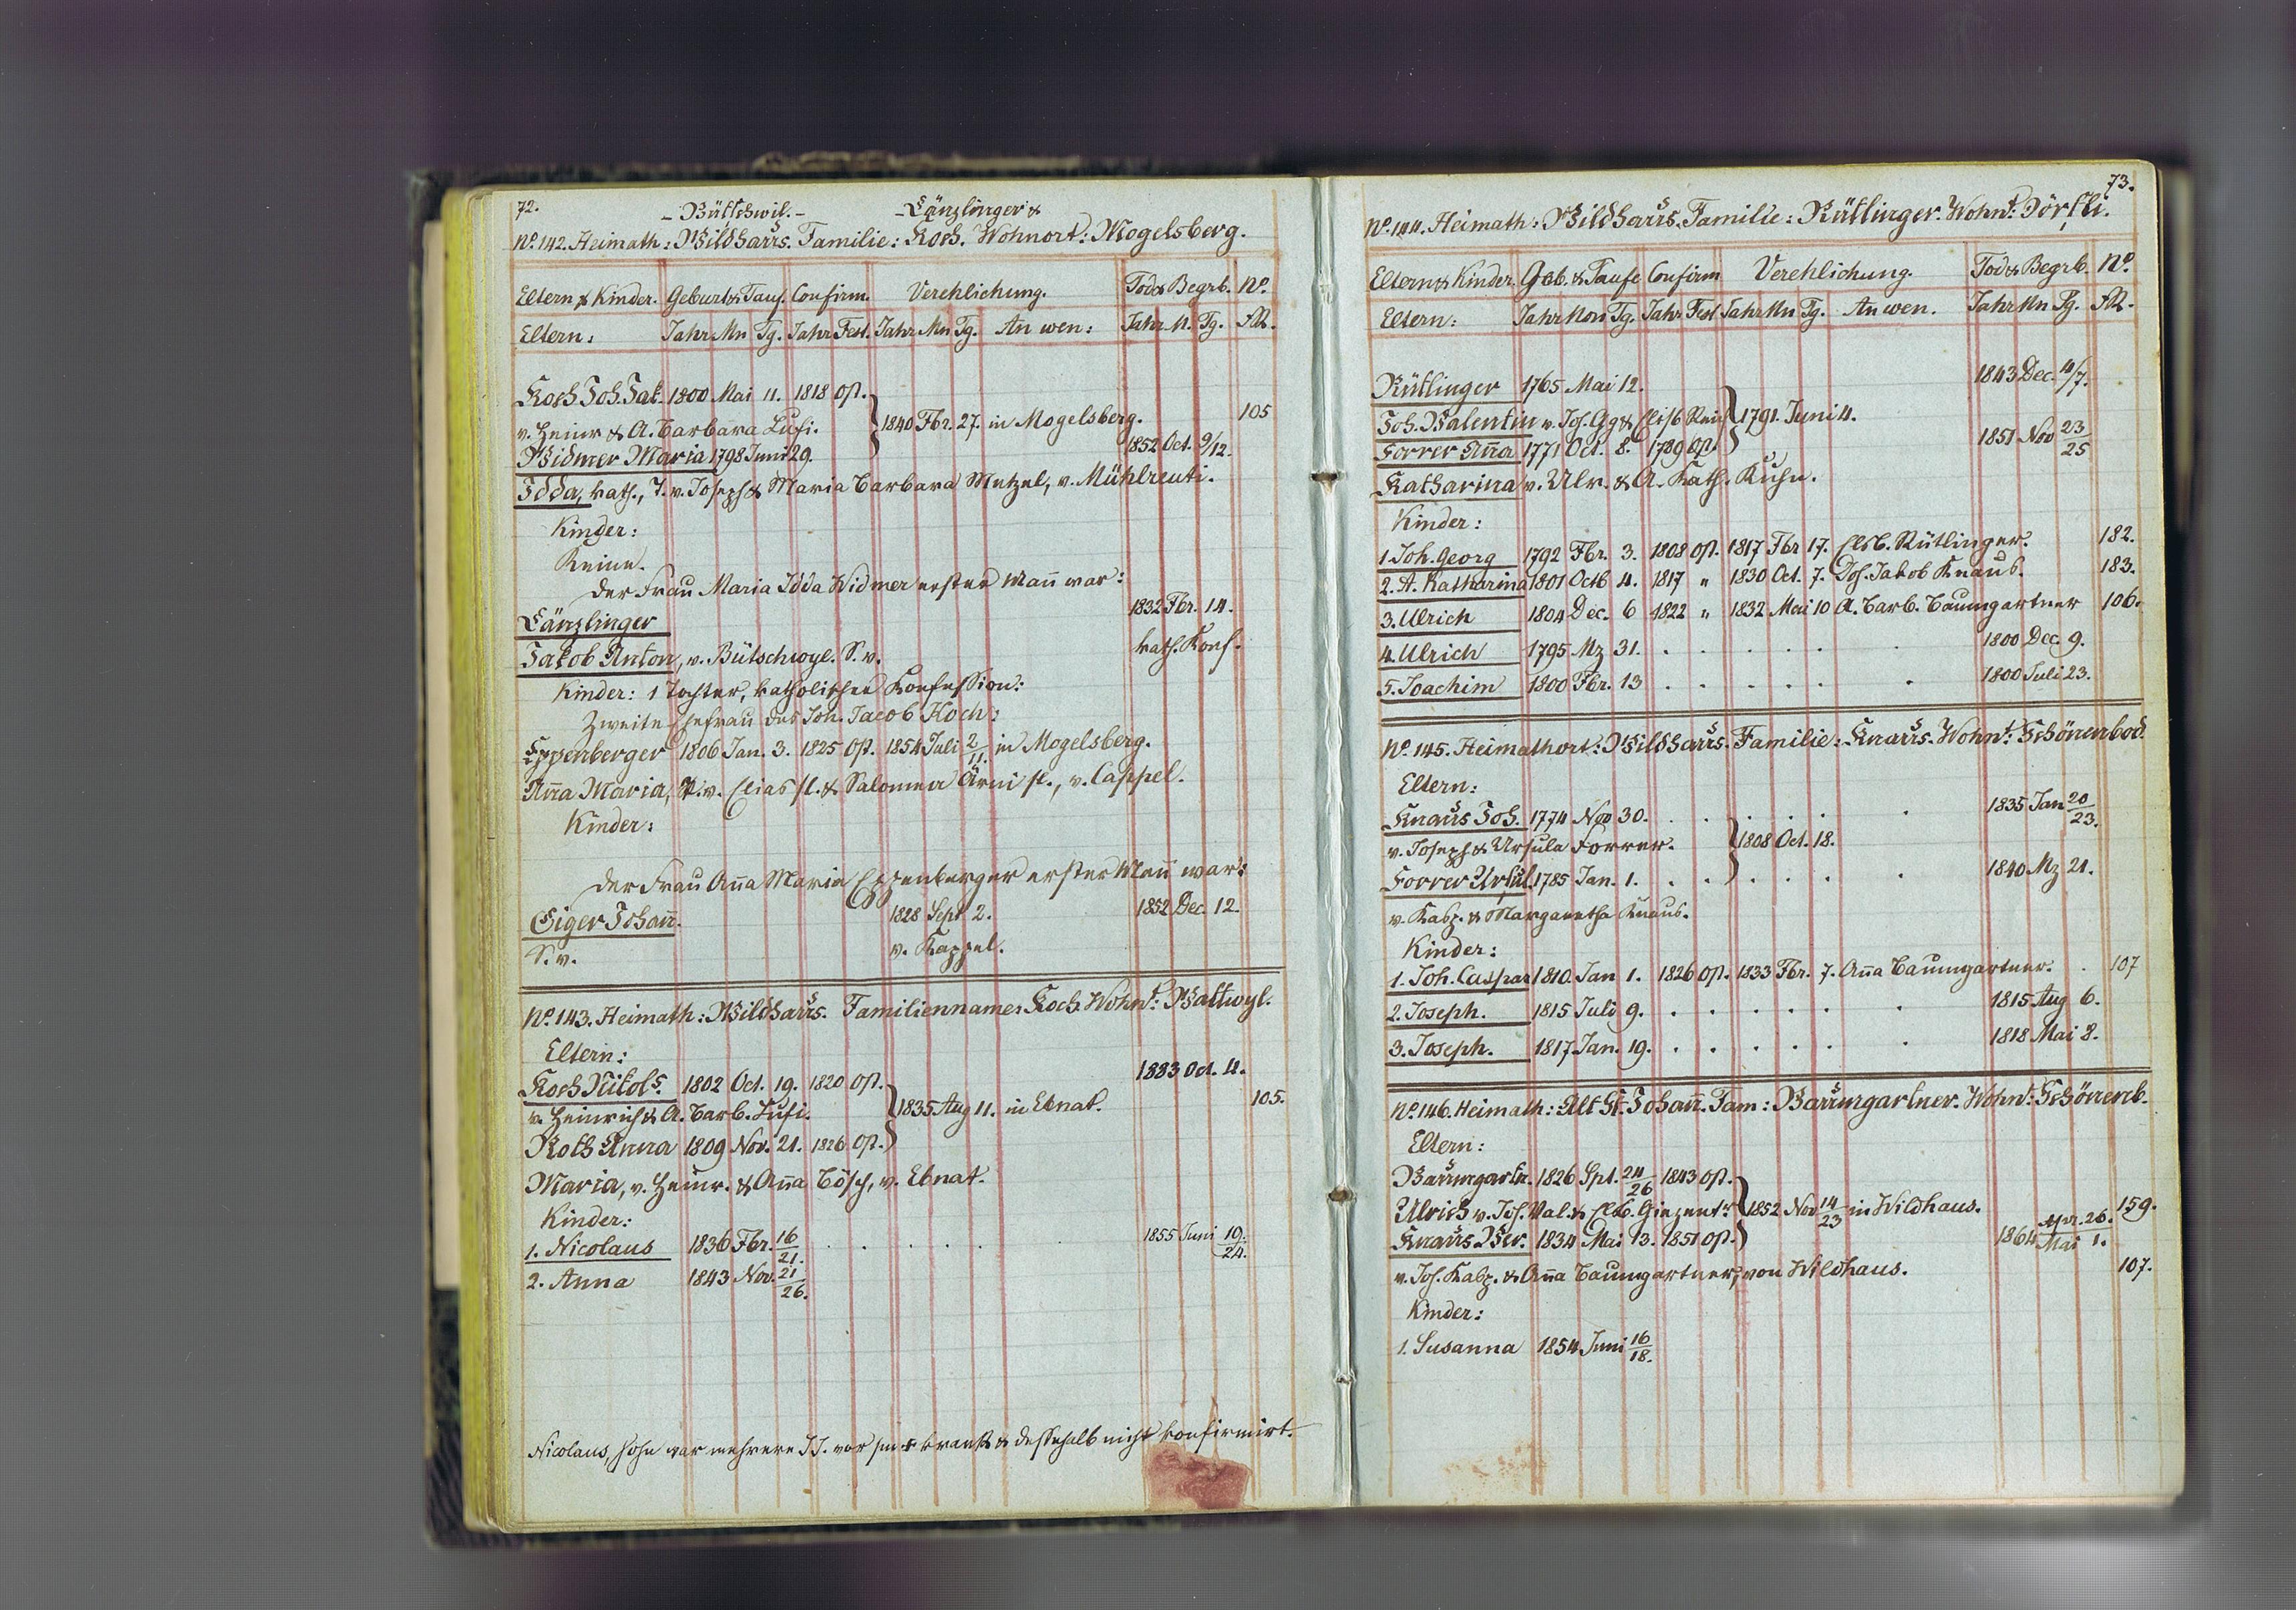 72.
- Bütschwil. - - Länzlinger &
No. 142. Heimath: Wildhaus. Familie: Koch. Wohnort: Mogelsberg.
Eltern & Kinder. Geburt & Tauf. Confirm. Verehlichung. Tod & Begrb. No.
Eltern: Jahr Mn Tg. Jahr Fest. Jahr Mn Tg. An wen: Jahr M. Tg.
Koch Joh. Jak. 1800 Mai 11. 1818 Ost.
v. Heinr & A. Barbara Lusi. 1840 Fbr. 27. in Mogelsberg. 105
Widmer Maria 1798 Juni 29. 1852 Oct. 9/12.
Idda, kath., T. v. Joseph & Maria Barbara Metzel, v. Mühlreuti.
Kinder:
Keine.
Der Frau Maria Idda Widmer erster Mañ war:
Länzlinger 1832 Fbr. 14.
Jakob Anton, v. Bütschwyl. S. v. kath. Konf.
Kinder: 1 Tochter, katholischer Konfession:
Zweite Ehefrau des Joh. Jacob Koch:
Eppenberger 1806 Jan. 3. 1825 Ost. 1854 Juli 2/11. in Mogelsberg.
Aña Maria, T. v. Elias sl. & Salomea Ärni sl., v. Cappel.
Kinder:
Der Frau Aña Maria Eppenberger erster Mañ war:
Giger Johañ. 1828 Sept 2. 1852 Dec. 12.
S. v. v. Kappel.
No. 143. Heimath: Wildhaus. Familienname: Koch. Wohnt: Wattwyl.
Eltern:
Koch Nikols. 1802 Oct. 19. 1820 Ost. 1883 Oct. 4.
v. Heinrich & A. Barb. Lusi. 1835 Aug 11. in Ebnat. 105.
Roth Anna 1809 Nov. 21. 1826 Ost.
Maria, v. Heinr. & Aña Bösch, v. Ebnat.
Kinder:
1. Nicolaus 1836 Fbr. 16/21. . . . . . . 1855 Juni 19./24.
2. Anna 1843 Nov. 21/26.
Nicolaus, Sohn war mehrere JJ. vor sm † krank & deßhalb nicht konfirmirt.
73.
No. 144. Heimath: Wildhaus. Familie: Rütlinger. Wohnt: Dörfli.
Eltern & Kinder. Geb. & Taufe Confirm Verehlichung. Tod & Begrb. No.
Eltern: Jahr Mon Tg. Jahr Fest Jahr Mn Tg. An wen. Jahr Mn Tg.
Rütlinger 1765 Mai 12. 1843 Dec. 4/7.
Joh. Valentin v. Joh. Gg & Elisb 1791. Juni 4.
Forrer Aña 1771 Oct. 8. 1789 Ost. 1851 Nov 23/25
Katharina v. Ulr. & A. Kath. Kuhn.
Kinder:
1. Joh. Georg 1792 Fbr. 3. 1808 Ost. 1817 Fbr 17. Elsb. Rütlinger. 182.
2. A. Katharina 1801 Octb 4. 1817 " 1830 Oct. 7. Joh. Jakob Knaus. 183.
3. Ulrich 1804 Dec. 6 1822 " 1832 Mai 10 A. Barb. Baumgartner 106.
4. Ulrich 1795 Mz 31. . . . . . . . 1800 Dec. 9.
5. Joachim 1800 Fbr. 13 . . . . . . . 1800 Juli 23.
No. 145. Heimathort: Wildhaus. Familie: Knaus. Wohnt: Schönenbod.
Eltern:
Knaus Joh. 1774 Nov 30. . . . . . . 1835 Jan 20/23.
v. Joseph & Ursula Forrer. 1808 Oct. 18.
Forrer Ursul. 1785 Jan. 1. . . . . . . 1840 Mz 21.
v. Kasp. & Margaretha Knaus.
Kinder:
1. Joh. Caspar 1810. Jan 1. 1826 Ost. 1833 Fbr. 7. Aña Baumgartner. . 107
2. Joseph. 1815 Juli 9. . . . . . . . 1815 Aug 6.
3. Joseph. 1817 Jan. 19. . . . . . . . 1818 Mai 8.
No. 146. Heimath: Alt St. Johañ. Fam: Baumgartner. Wohnt: Schönenb.
Eltern:
Baumgartn. 1826 Spt. 24/26 1843 Ost.
Ulrich v. Joh. Val. & Elsb. Giezendr. 1852 Nov 14/23 in Wildhaus. 159.
Knaus Ver. 1834 Mai 13. 1851 Ost. 1864 Apr. 26./Mai 1.
v. Joh. Kasp. & Aña Baumgartner, von Wildhaus. 107.
Kinder:
1. Susanna 1854 Juni 16/18.